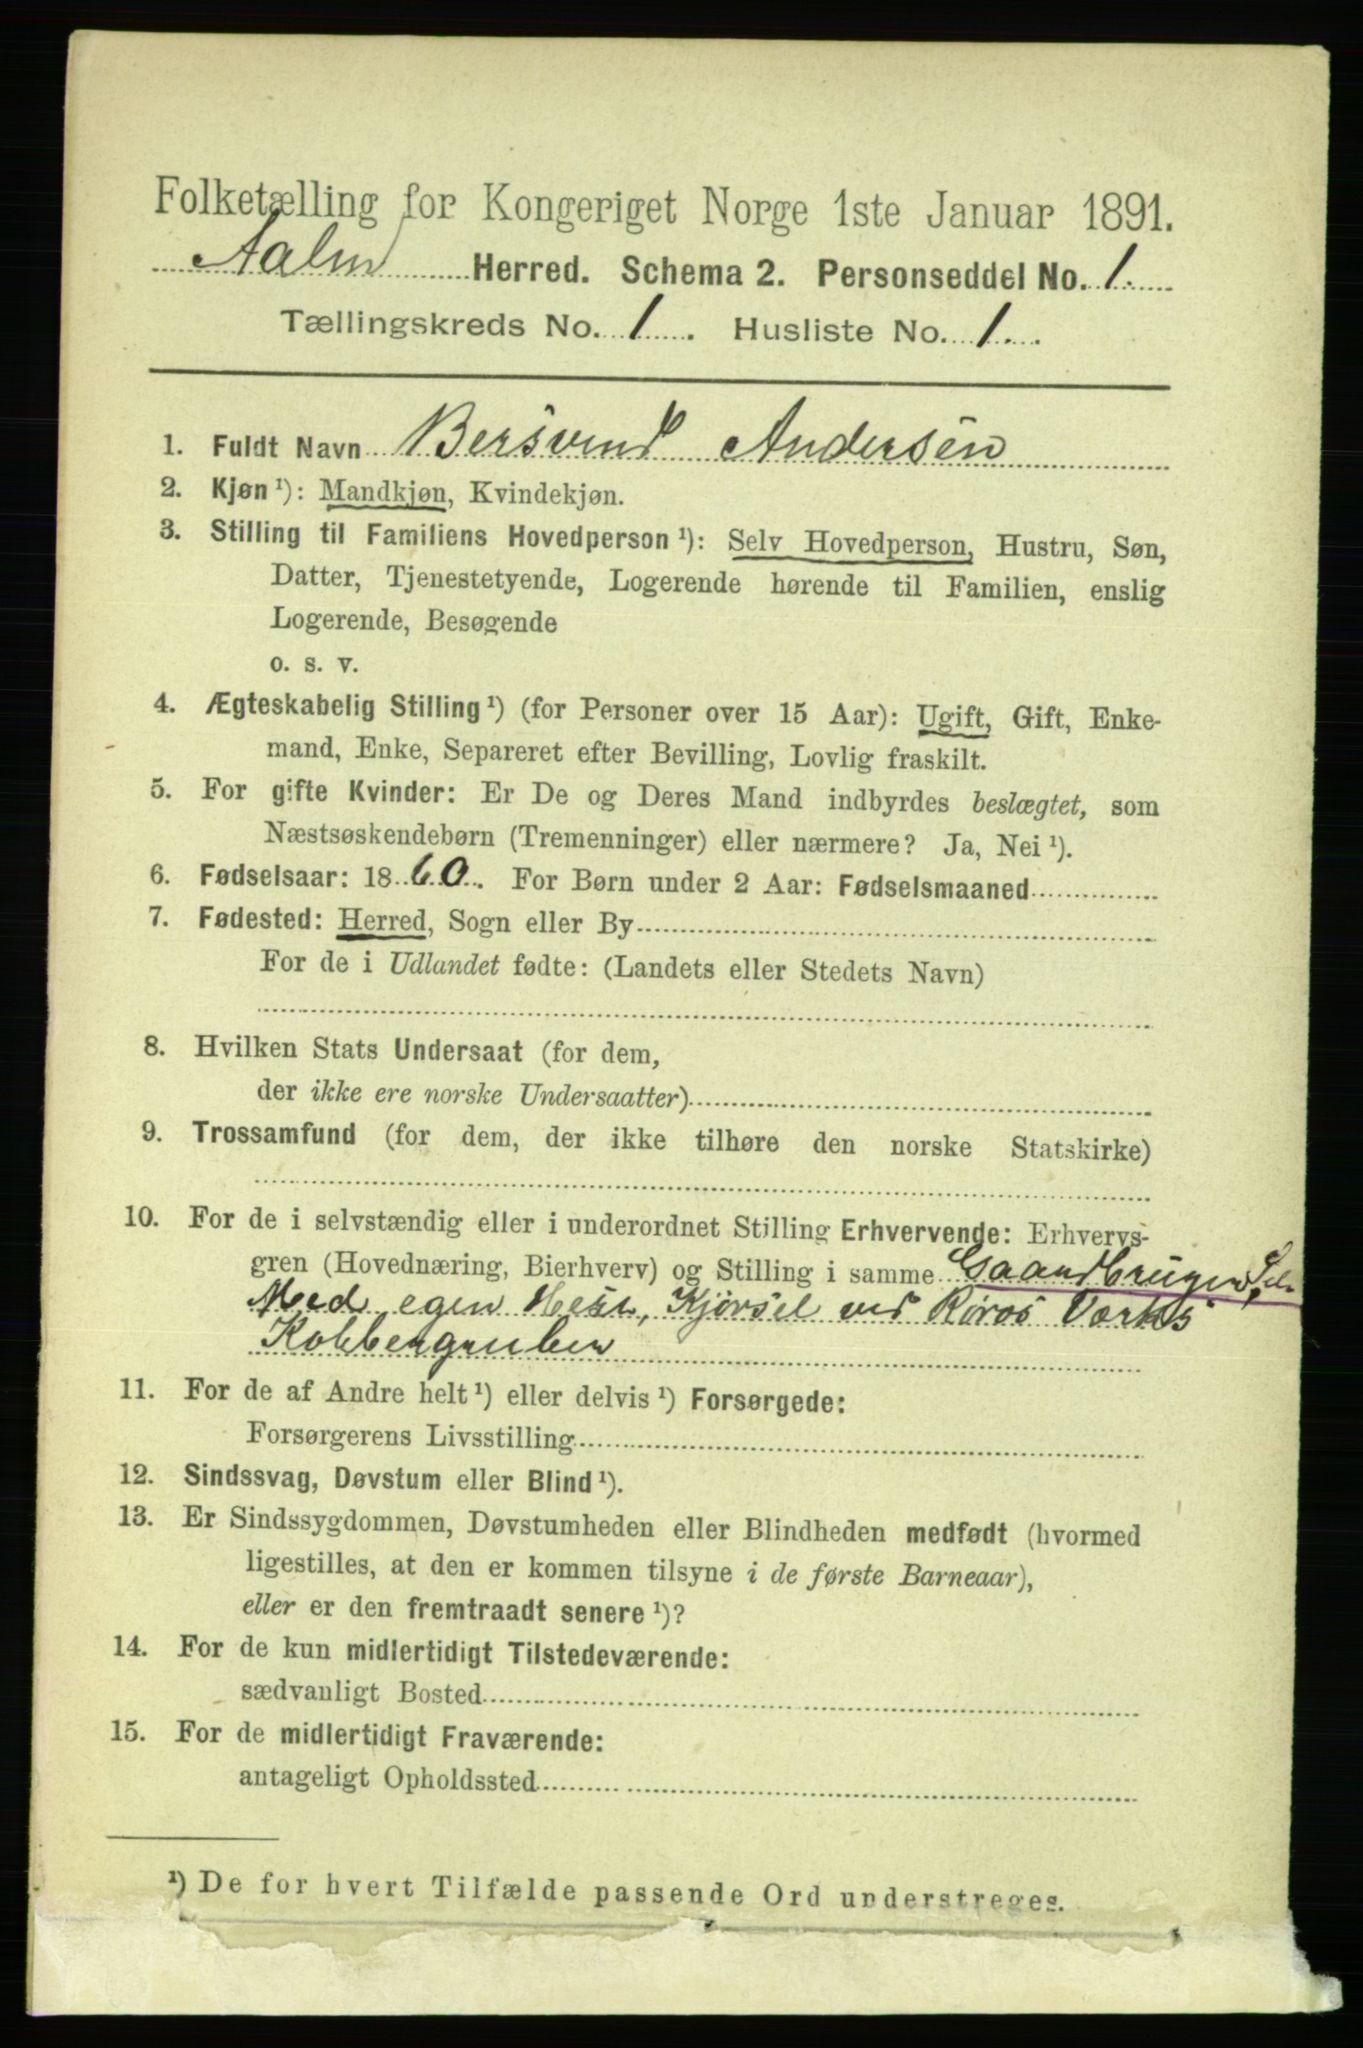 Folketælling for Kongeriget Norge 1ste Januar 1891.
Aalen Herred. Schema 2. Personseddel No. 1.
Tællingskreds No. 1. Husliste No. 1.
1. Fuldt Navn Bersvend Andersen
2. Kjøn ¹): Mandkjøn, Kvindekjøn.
3. Stilling til Familiens Hovedperson ¹): Selv Hovedperson, Hustru, Søn,
Datter, Tjenestetyende, Logerende hørende til Familien, enslig
Logerende, Besøgende
o. s. v.
4. Ægteskabelig Stilling ¹) (for Personer over 15 Aar): Ugift, Gift, Enke-
mand, Enke, Separeret efter Bevilling, Lovlig fraskilt.
5. For gifte Kvinder: Er De og Deres Mand indbyrdes beslægtet, som
Næstsøskendebørn (Tremenninger) eller nærmere? Ja, Nei ¹).
6. Fødselsaar: 1860. For Børn under 2 Aar: Fødselsmaaned
7. Fødested: Herred, Sogn eller By
For de i Udlandet fødte: (Landets eller Stedets Navn)
8. Hvilken Stats Undersaat (for dem,
der ikke ere norske Undersaatter)
9. Trossamfund (for dem, der ikke tilhøre den norske Statskirke)
10. For de i selvstændig eller i underordnet Stilling Erhvervende: Erhvervs-
gren (Hovednæring, Bierhverv) og Stilling i samme Gaardbruger, Sel.
Med egen Hest, Kjørsel ved Røros Værks
Kobbergruber
11. For de af Andre helt ¹) eller delvis ¹) Forsørgede:
Forsørgerens Livsstilling
12. Sindssvag, Døvstum eller Blind ¹).
13. Er Sindssygdommen, Døvstumheden eller Blindheden medfødt (hvormed
ligestilles, at den er kommen tilsyne i de første Barneaar),
eller er den fremtraadt senere ¹)?
14. For de kun midlertidigt Tilstedeværende:
sædvanligt Bosted
15. For de midlertidigt Fraværende:
antageligt Opholdssted
¹) De for hvert Tilfælde passende Ord understreges.